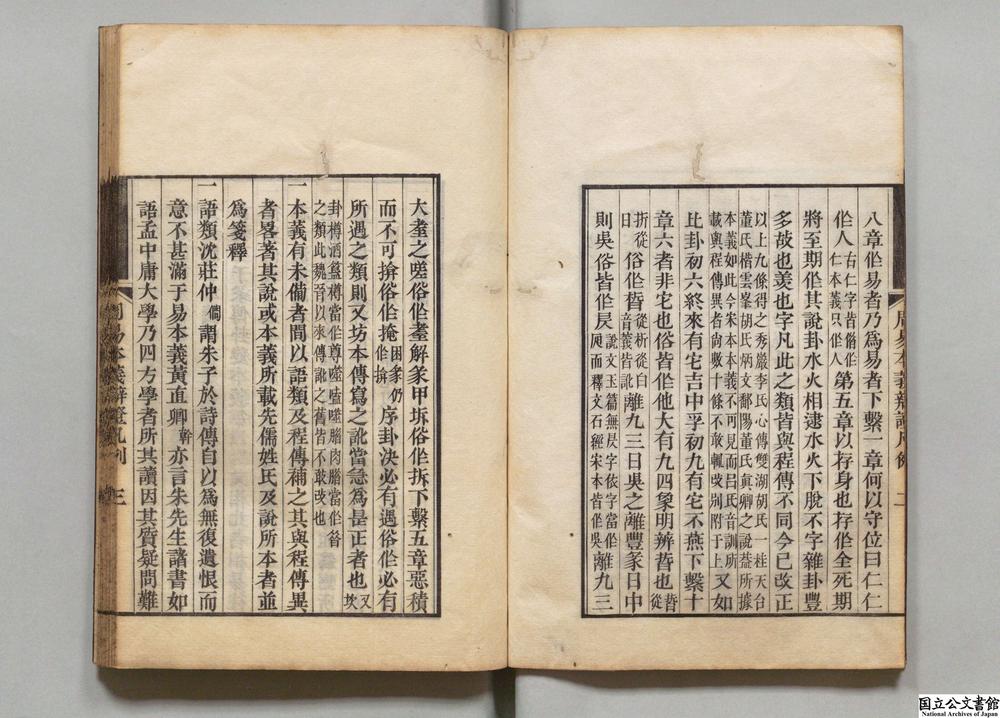 八章作易者乃為易者下繫一章何以守位曰仁仁
作人古仁字皆爾作仁本義只作人第五章以存身也存作全死期
將至期作其說卦水火相逮水火下脫不字雜卦豐
多故也羡也字凡此之類皆與程傳不同今已改正
以上九條得之秀嚴李氏心傳雙湖胡氏一桂天台
董氏楷雲峯胡氏炳文鄱陽董氏真卿之說葢所據
本義如此今宋本本義不可見而呂氏音訓所
載與程傳異者尚數十條不敢輒改别附于上又如
比卦初六終來有宅吉中孚初九有宅不燕下繫十
章六者非宅也俗皆作他大有九四象明辨晳也晳從
折從日俗作晳音義皆訛從析從白離九三日昃之離豐彖日中
則昃俗皆作昃說文玉篇無昃字依字當作𣅔而釋文石經宋本皆作昃離九三
周易本義辨證凡例 二
大耋之嗟俗作耊解彖甲坼俗作拆下繫五章惡積
而不可揜俗作掩困彖仍作揜序卦決必有遇俗作必有
所遇之類則又坊本傳寫之訛當急為是正者也又坎
卦樽酒簋樽當作尊噬嗑噬腊肉腊當作昔
之類此魏晉以來傳訛之舊皆不敢改也
一本義有未備者間以語類及程傳補之其與程傳異
者畧著其說或本義所載先儒姓氏及說所本者並
為箋釋
一語類沈莊仲僩謂朱子於詩傳自以為無復遺恨而
意不甚滿于易本義黃直卿幹亦言朱先生諸書如
語孟中庸大學乃四方學者所共讀因其質疑問難
周易本義辨證凡例 三
国立公文書館
National Archives of Japan